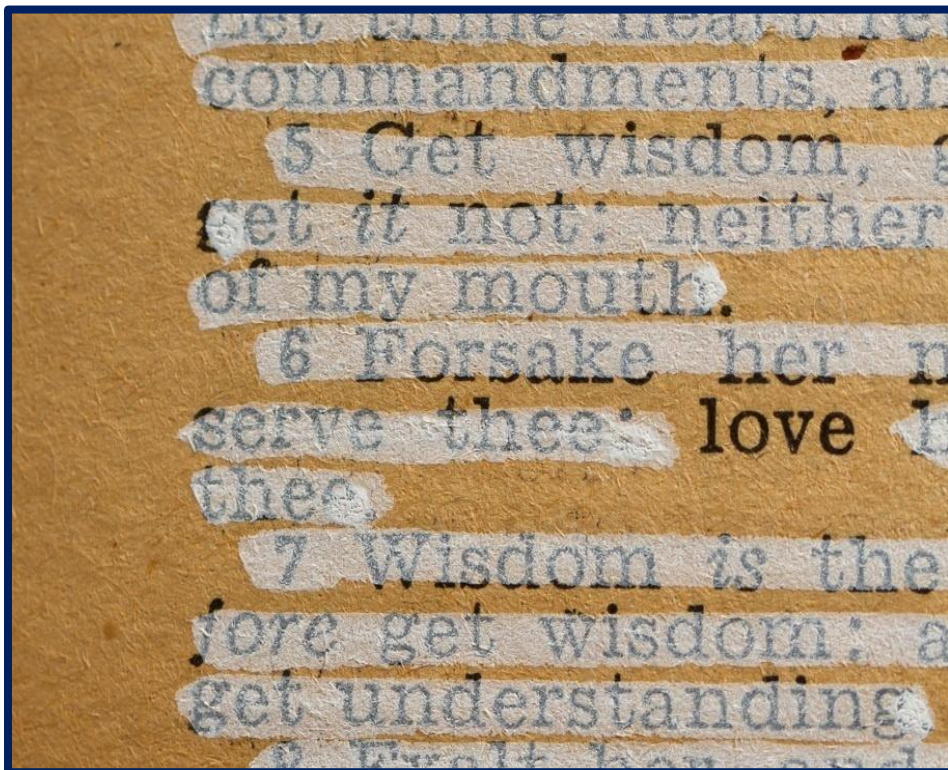 Let thine heart re
commandments, an
5 Get wisdom, g
get it not: neither
of my mouth.
6 Forsake her n
serve thee: love b
thee.
7 Wisdom is the
fore get wisdom: a
get understanding.
8 Exalt her and